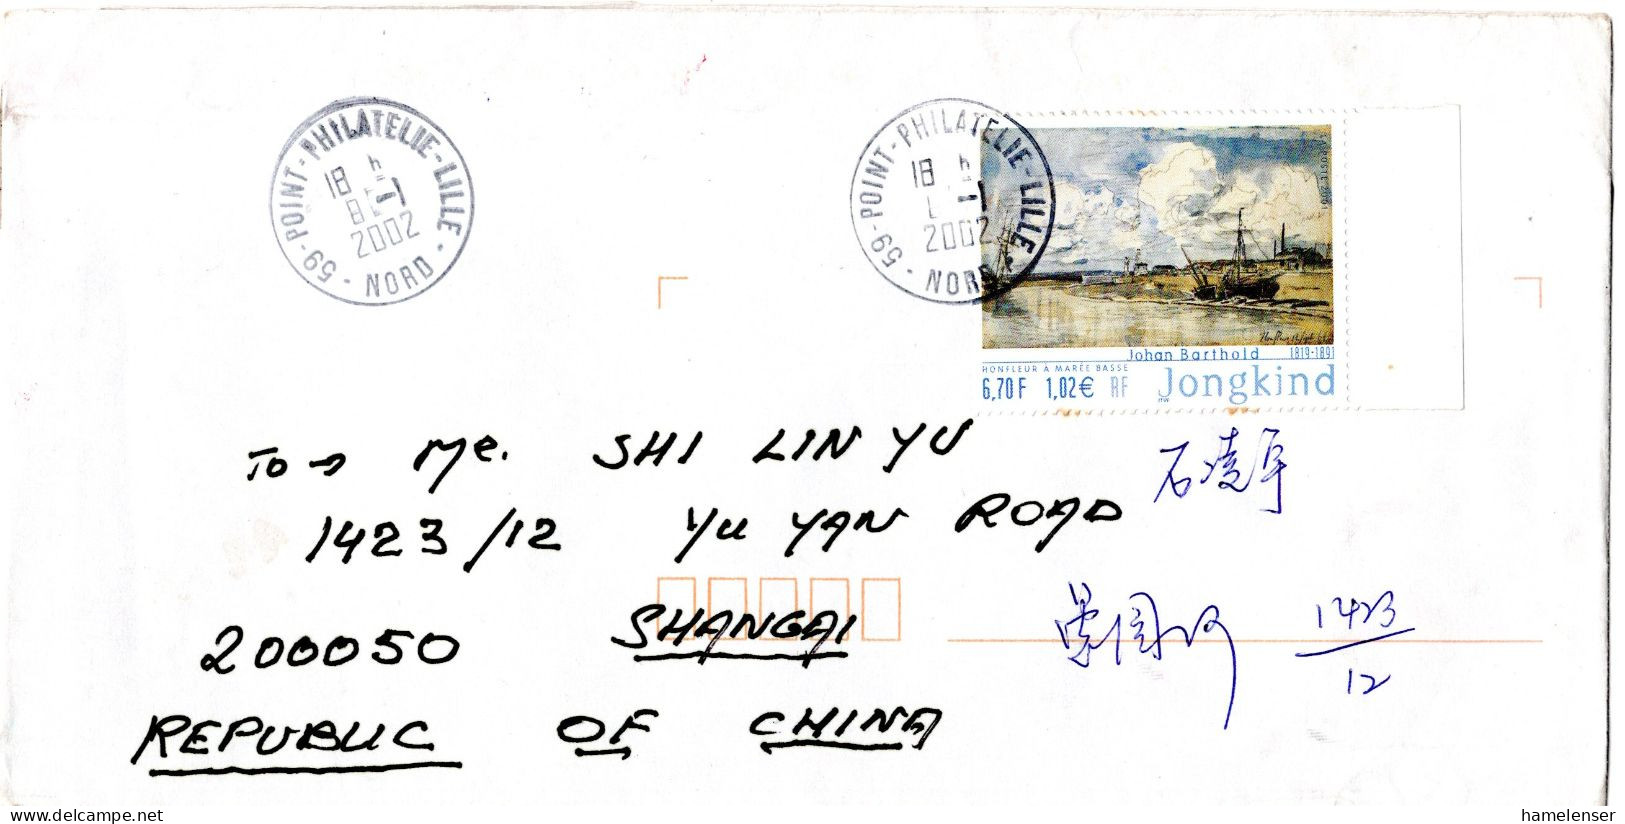 59-POINT-PHILATELIE-LILLE-NORD-
18 H
8-1
2002
59-POINT-PHILATELIE-LILLE-NORD-
18 H
-1
2002
LA POSTE 2001
Johan Barthold 1819-1891
HONFLEUR À MARÉE BASSE
6,70F 1,02€ RF Jongkind
ITVF
TO → Mr. SHI LIN YU
石凌聿
1423/12 YU YAN ROAD
愚园路 1423/12
200050 SHANGAI
REPUBLIC OF CHINA
hamelenser